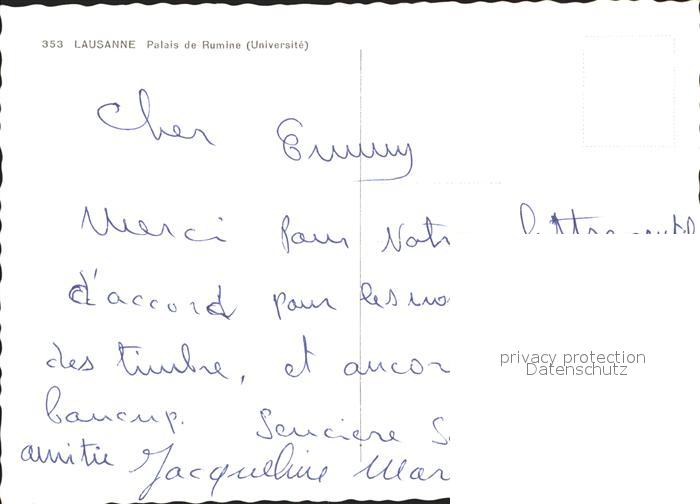 353 LAUSANNE Palais de Rumine (Université)
Cher Emmy
Merci pour Votr
d'accord pour les
des timbre, et ancor
baucup. Senciere S
amitie Jacqueline Mar
privacy protection
Datenschutz